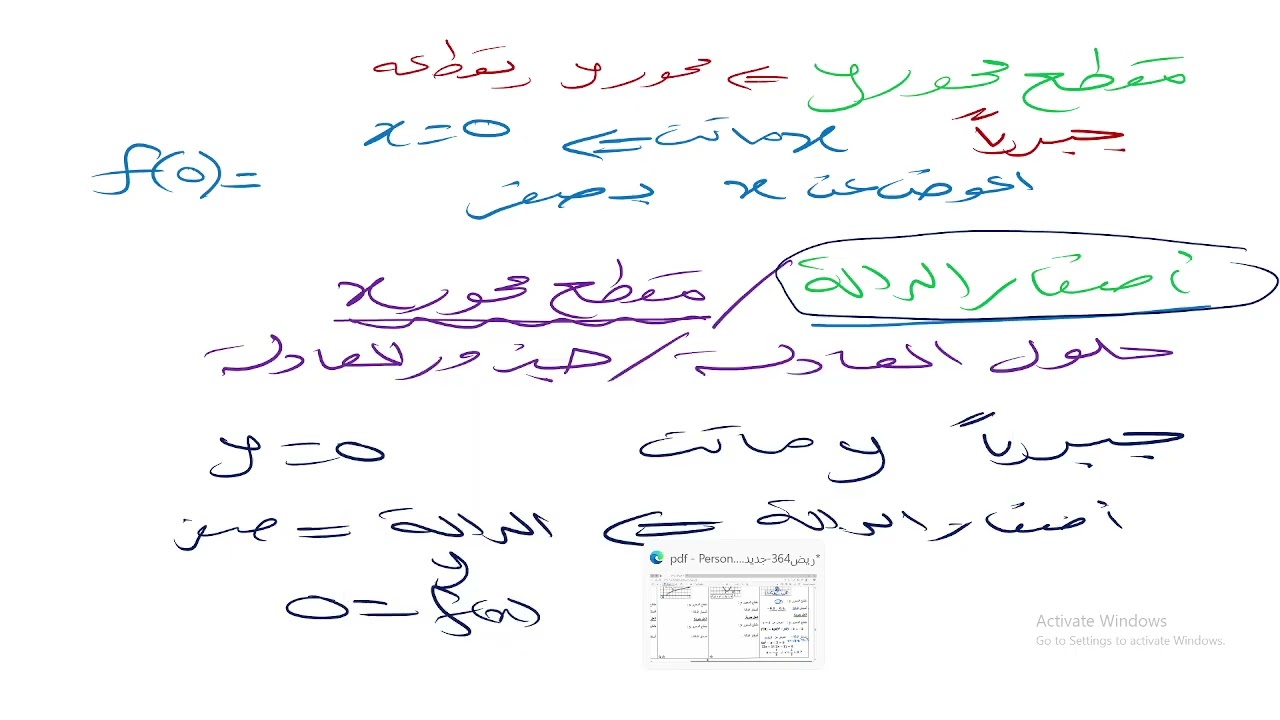 مقطع محور y ⇐ محور y يقطعه
جبرياً x ماتت ⇐ x = 0
اعوض عن x بـ صفر f(0) =
أصفار الدالة / مقطع محور x
حلول المعادلة / جذور المعادلة
جبرياً y ماتت y = 0
أصفار الدالة ⇐ الدالة = صفر
y
0 = f(x)
pdf - Person....جديد-364ريض*
Activate Windows
Go to Settings to activate Windows.